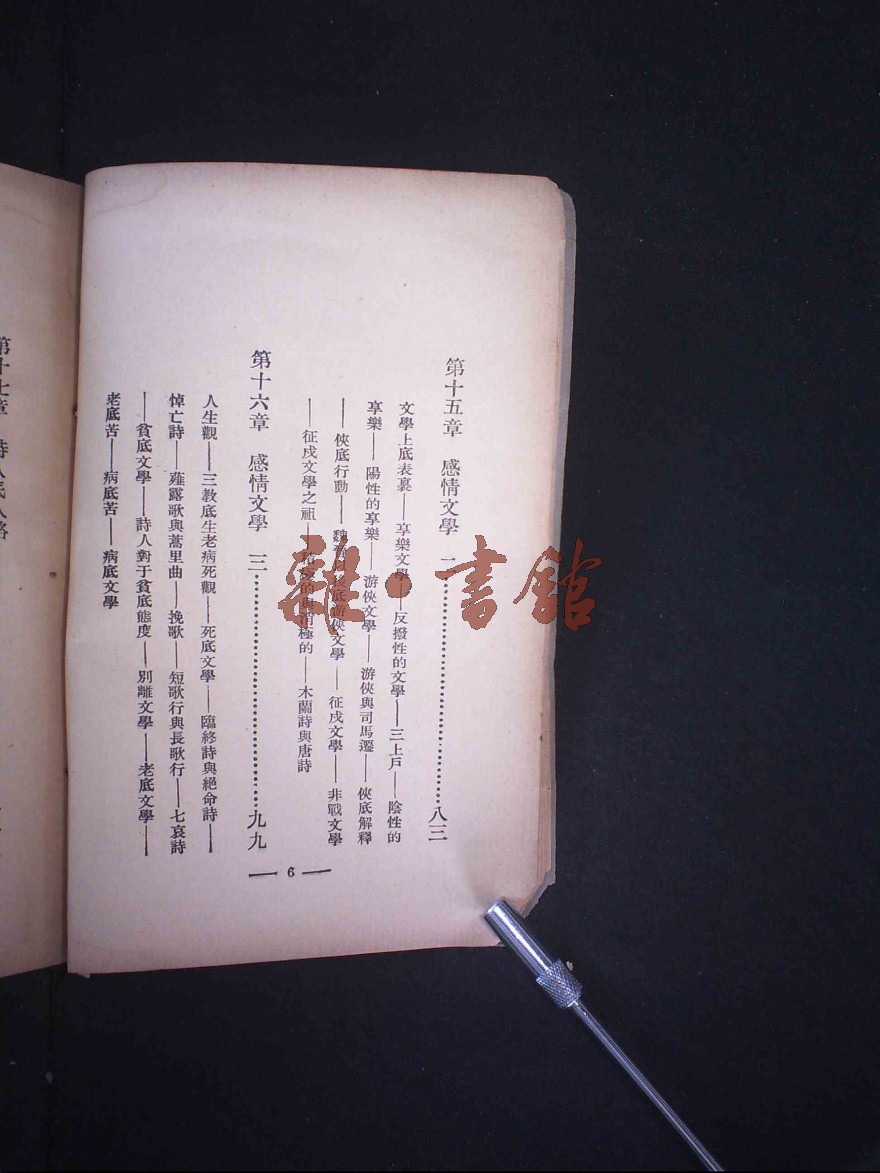 第十五章　感情文學　二…………八三
文學上底表裏——享樂文學——反撥性的文學——三上戶——陰性的
享樂——陽性的享樂——游俠文學——游俠與司馬遷——俠底解釋
——俠底行動——魏晉以後底游俠文學——征戍文學——非戰文學
——征戍文學之祖——的與消極的——木蘭詩與唐詩
第十六章　感情文學　三…………九九
人生觀——三教底生老病死觀——死底文學——臨終詩與絕命詩——
悼亡詩——薤露歌與蒿里曲——挽歌——短歌行與長歌行——七哀詩
——貧底文學——詩人對于貧底態度——別離文學——老底文學——
老底苦——病底苦——病底文學
— 6 —
第十七章　詩人底人格
雜·書館